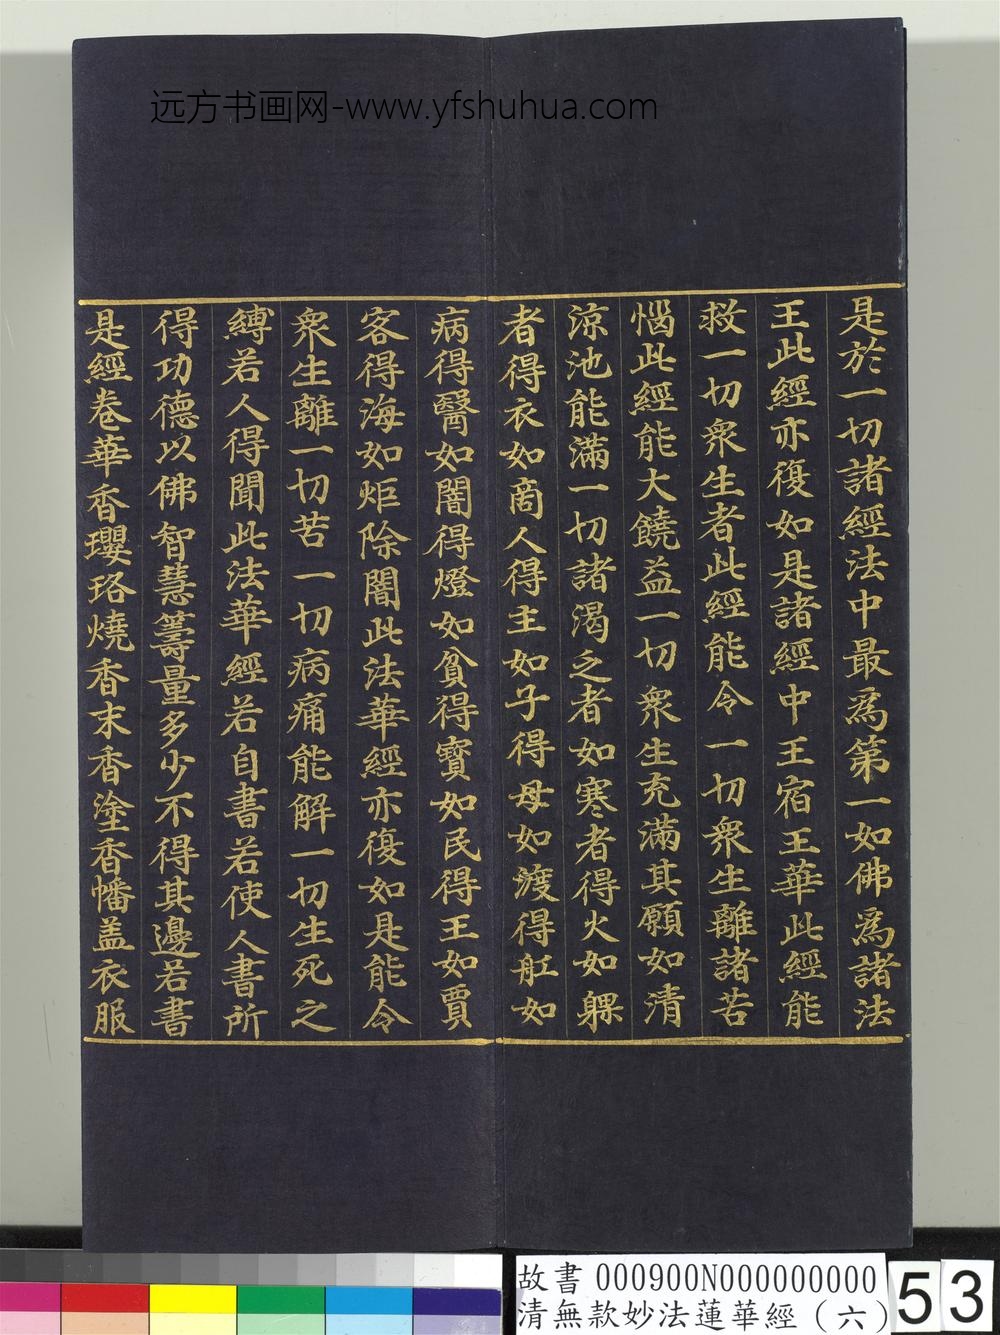 远方书画网-www.yfshuhua.com
是於一切諸經法中最爲第一如佛爲諸法
王此經亦復如是諸經中王宿王華此經能
救一切衆生者此經能令一切衆生離諸苦
惱此經能大饒益一切衆生充滿其願如清
涼池能滿一切諸渴乏者如寒者得火如躶
者得衣如商人得主如子得母如渡得舡如
病得醫如闇得燈如貧得寶如民得王如賈
客得海如炬除闇此法華經亦復如是能令
衆生離一切苦一切病痛能解一切生死之
縛若人得聞此法華經若自書若使人書所
得功德以佛智慧籌量多少不得其邊若書
是經卷華香瓔珞燒香末香塗香幡盖衣服
故書 000900N000000000
清無款妙法蓮華經（六）
53